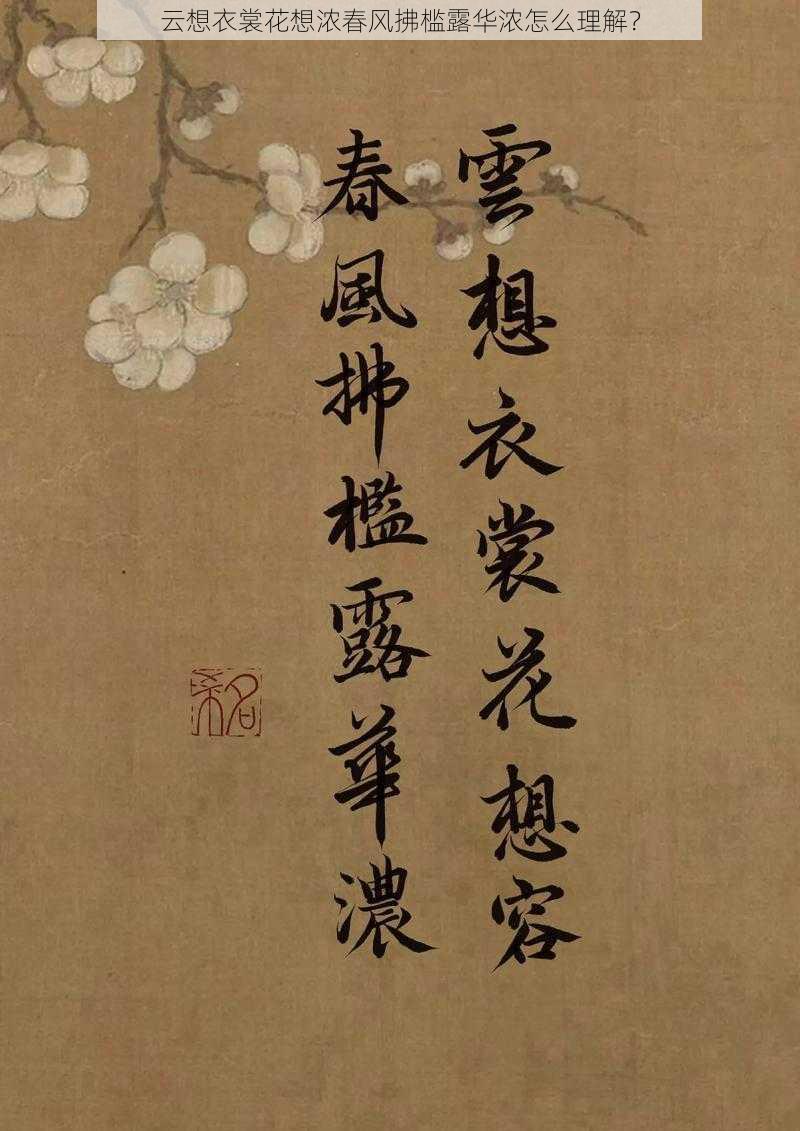 云想衣裳花想浓春风拂槛露华浓怎么理解？
雲想衣裳花想容
春風拂檻露華濃